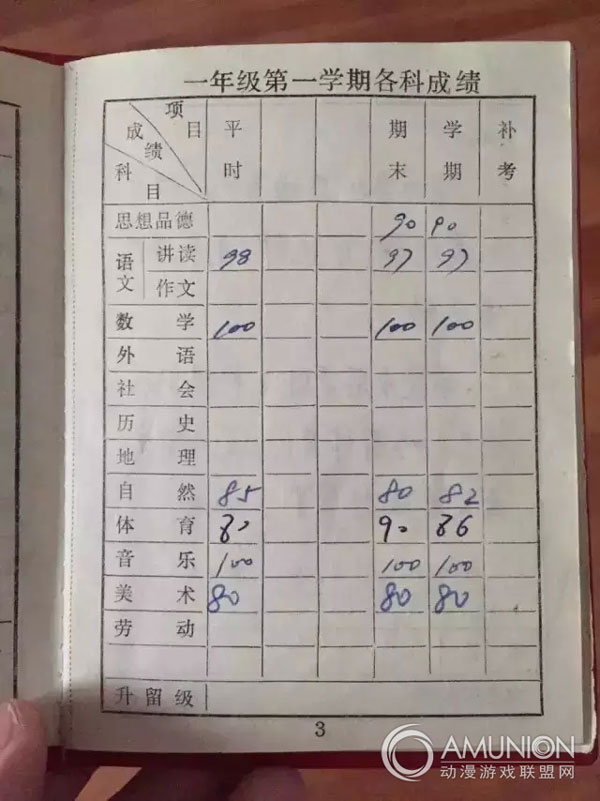 一年级第一学期各科成绩
项目 成绩 科目 平时 期末 学期 补考
思想品德 90 90
语文 讲读 98 97 97
作文
数学 100 100 100
外语
社会
历史
地理
自然 85 80 82
体育 80 90 86
音乐 100 100 100
美术 80 80 80
劳动
升留级
3
AMUNION
动漫游戏联盟网